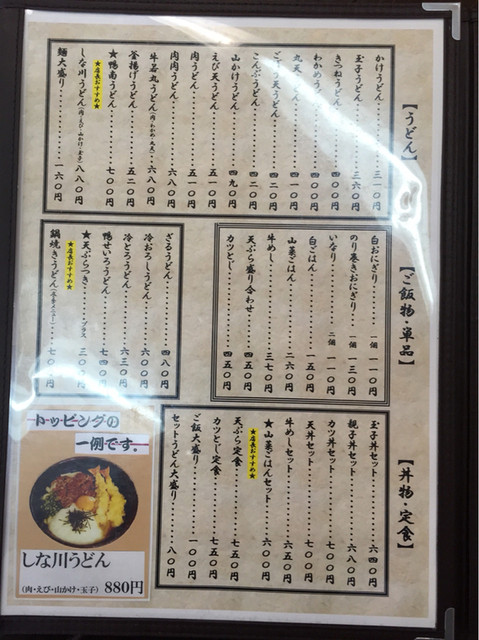 【うどん】
かけうどん 三一〇円
玉子うどん 三六〇円
きつねうどん 四〇〇円
わかめうどん 四〇〇円
丸天うどん 四一〇円
ごぼう天うどん 四二〇円
こんぶうどん 四二〇円
山かけうどん 四九〇円
えび天うどん 五一〇円
肉うどん 五一〇円
肉肉うどん 六八〇円
牛若丸うどん(肉・わかめ・丸天) 六八〇円
釜揚げうどん 五二〇円
★鴨南うどん 七〇〇円
★店長おすすめ★
しな川うどん(肉・えび・山かけ・玉子) 八八〇円
麺大盛り 一六〇円
【ご飯物・単品】
白おにぎり 一個 一一〇円
のり巻きおにぎり 一個 一三〇円
いなり 二個 一一〇円
白ごはん 一五〇円
山菜ごはん 二六〇円
牛めし 三七〇円
天ぷら盛り合わせ 四五〇円
カツとじ 四五〇円
ざるうどん 四八〇円
冷おろしうどん 六〇〇円
冷とろうどん 六三〇円
鴨せいろうどん 七四〇円
★天ぷらつき プラス 三〇〇円
★店長おすすめ★
鍋焼きうどん(冬季メニュー) 七〇〇円
【丼物・定食】
玉子丼セット 六四〇円
親子丼セット 六八〇円
カツ丼セット 七〇〇円
天丼セット 七〇〇円
牛めしセット 六五〇円
★山菜ごはんセット 六〇〇円
★店長おすすめ★
天ぷら定食 七五〇円
カツとじ定食 七五〇円
ご飯大盛り 一〇〇円
セットうどん大盛り 八〇円
トッピングの
一例です。
しな川うどん
(肉・えび・山かけ・玉子) 880円